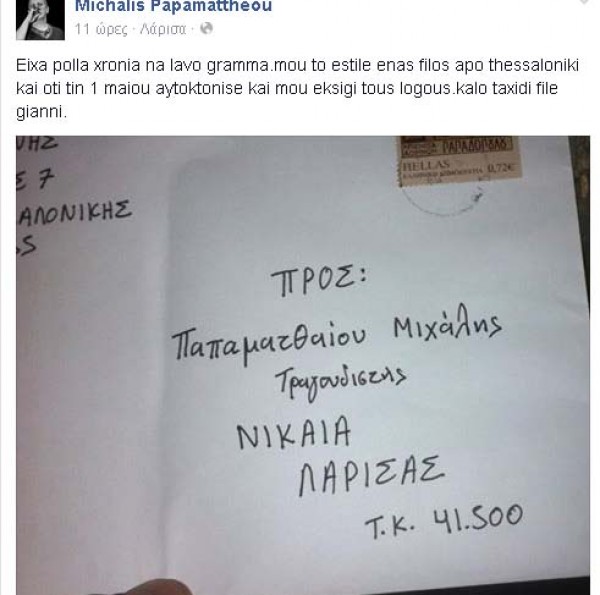 Michalis Papamattheou
11 ώρες · Λάρισα ·
Eixa polla xronia na lavo gramma.mou to estile enas filos apo thessaloniki
kai oti tin 1 maiou aytoktonise kai mou eksigi tous logous.kalo taxidi file
gianni.
ΠΑΠΑΔΟΠΟΥΛΟΣ
HELLAS
0,72€
ΝΗΣ
Σ 7
ΑΛΟΝΙΚΗΣ
S
ΠΡΟΣ:
Παπαματθαίου Μιχάλης
Τραγουδιστής
ΝΙΚΑΙΑ
ΛΑΡΙΣΑΣ
Τ.Κ. 41.500